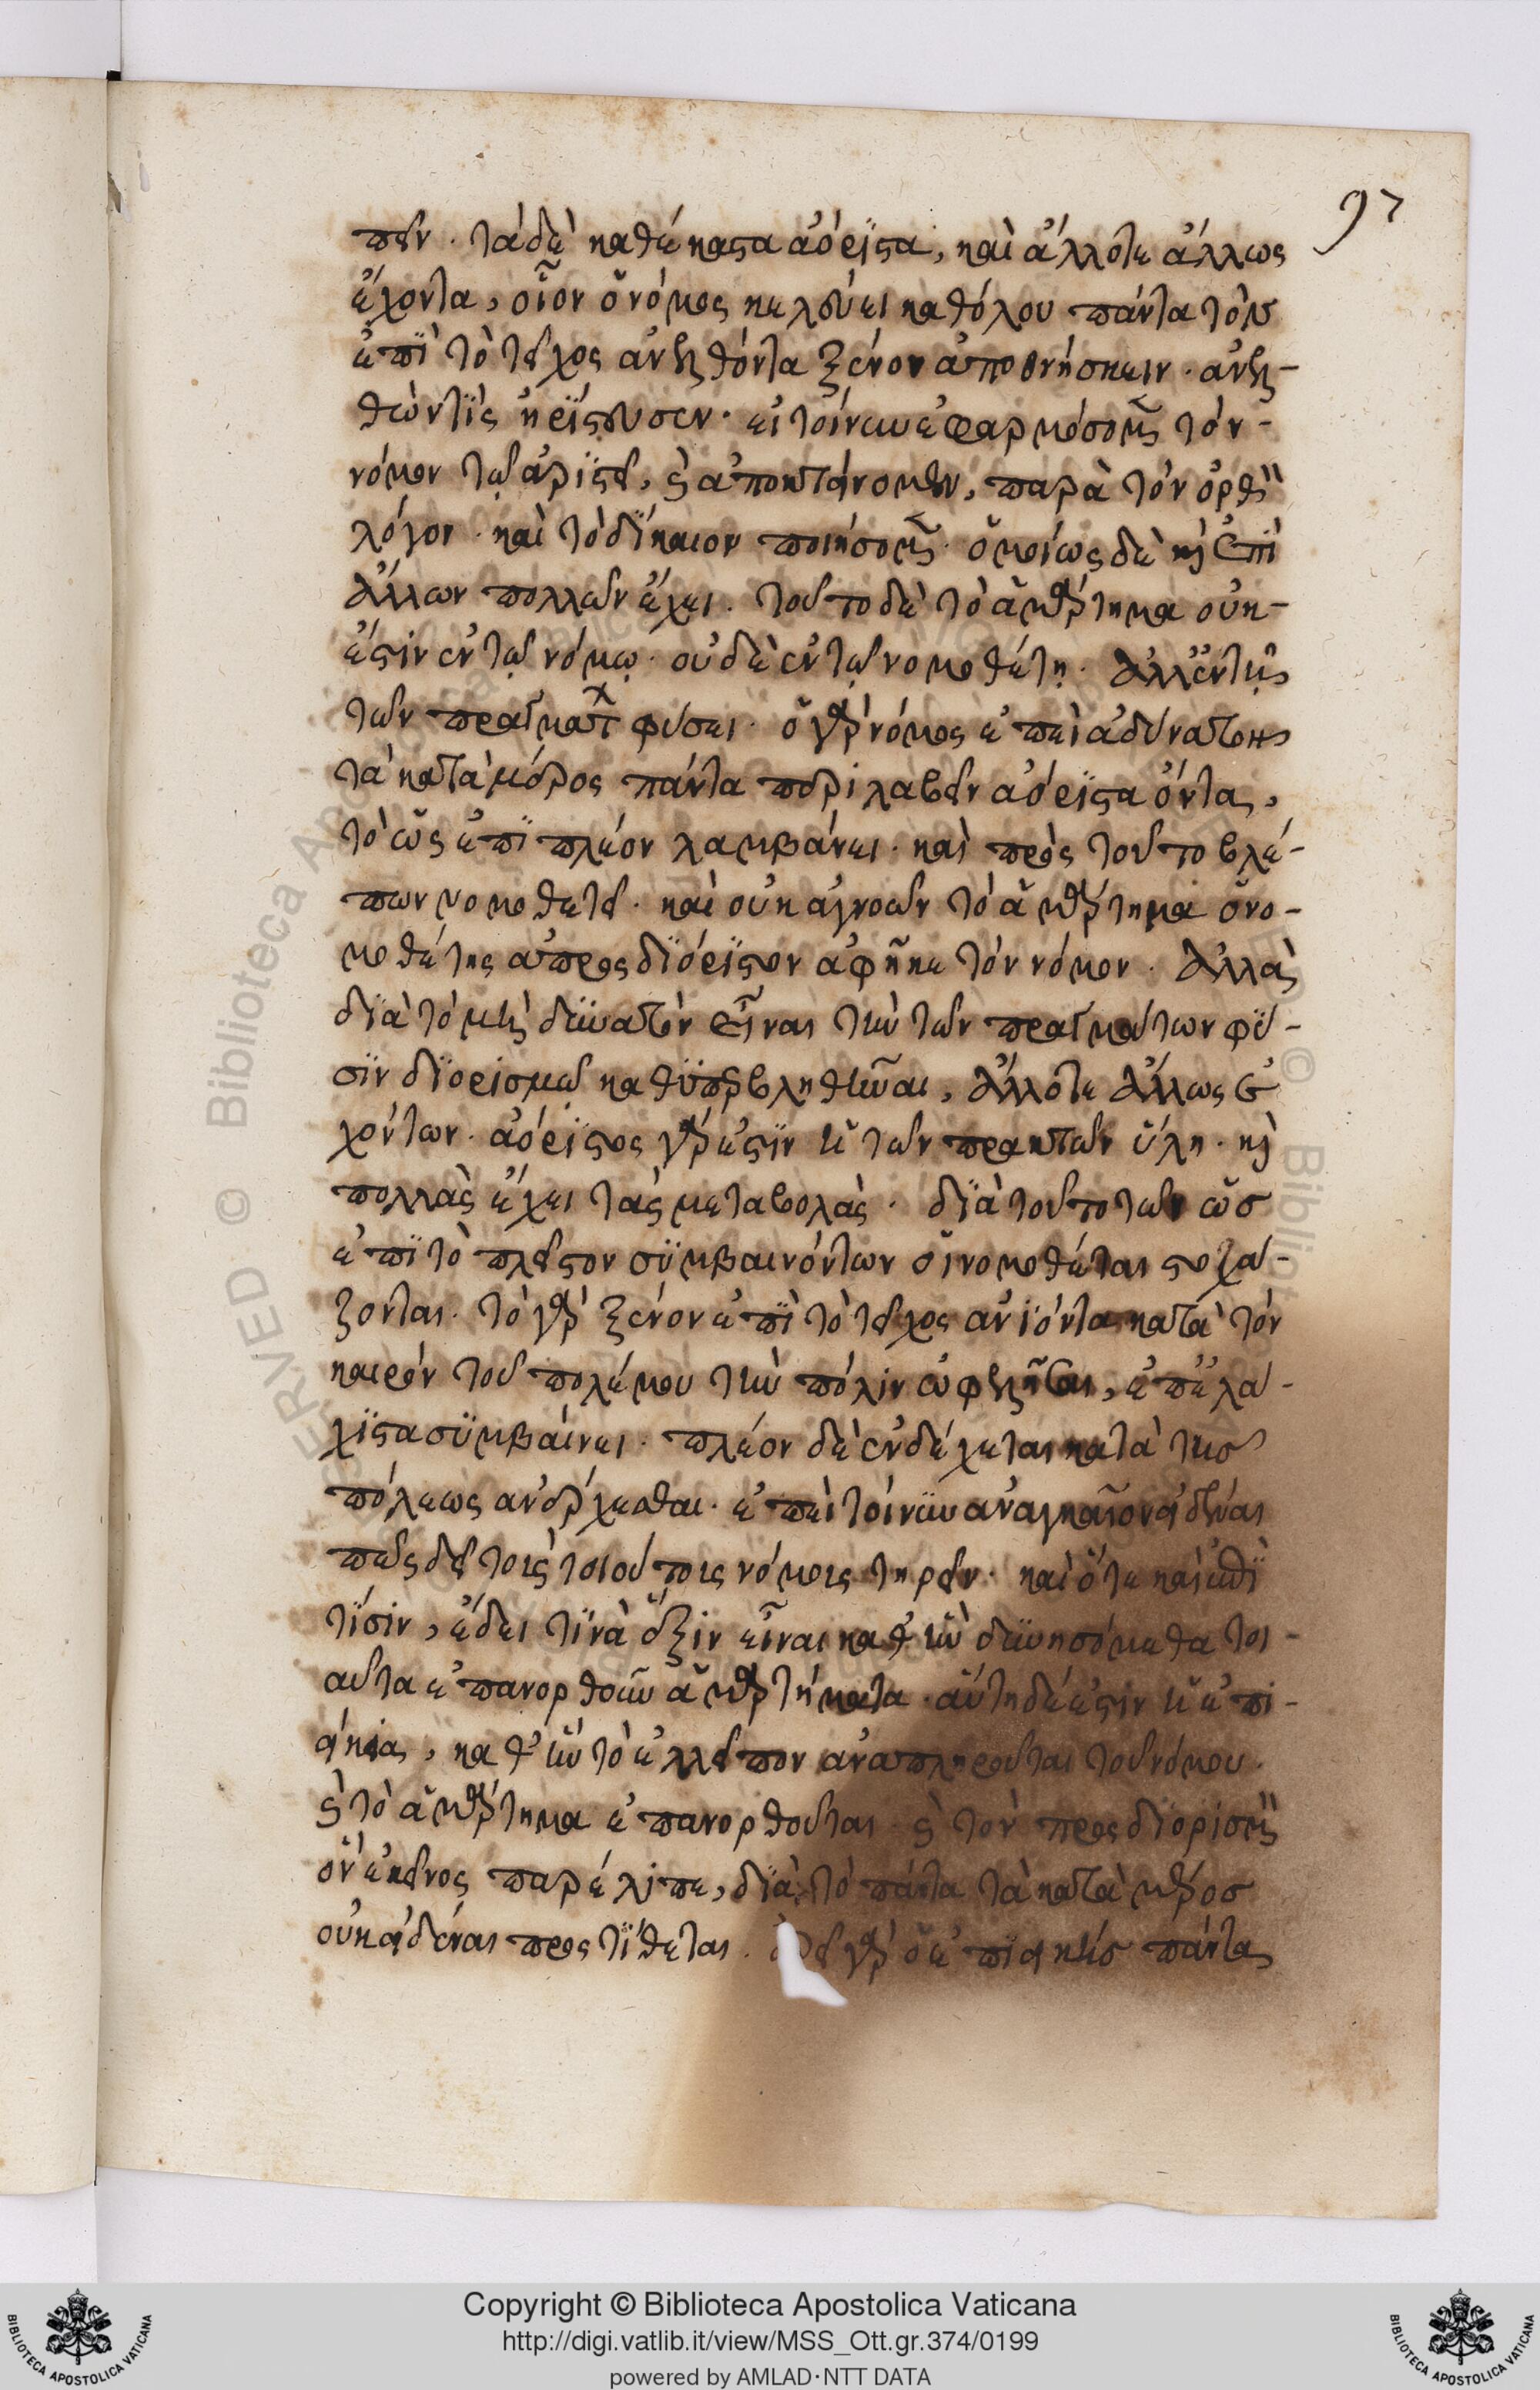 97
πεῖν. τὰ δὲ καθέκαστα ἀόριστα, καὶ ἄλλοτε ἄλλως
ἔχοντα, οἷον ὁ νόμος κελεύει καθόλου πάντα τὸν
ἐπὶ τὸ τεῖχος ἀνελθόντα ξένον ἀποθνήσκειν. ἀνελ-
θών τις ἠρίστευσεν. εἰ τοίνυν ἐφαρμόσομεν τὸν
νόμον τῷ ἀριστεῖ, καὶ ἀποκτείνομεν, παρὰ τὸν ὀρθὸν
λόγον. καὶ τὸ δίκαιον ποιήσομεν. ὁμοίως δὲ καὶ ἐπὶ
ἄλλων πολλῶν ἔχει. τοῦτο δὲ τὸ ἁμάρτημα οὐκ
ἔστιν ἐν τῷ νόμῳ. οὐδὲ ἐν τῷ νομοθέτῃ. ἀλλ' ἐν τῆς
τῶν πραγμάτων φύσει. ὁ γὰρ νόμος ἐπεὶ ἀδύνατον
τὰ κατὰ μέρος πάντα περιλαβεῖν ἀόριστα ὄντα,
τὸ ὡς ἐπὶ πλέον λαμβάνει. καὶ πρὸς τοῦτο βλέ-
πων νομοθετεῖ. καὶ οὐκ ἀγνοῶν τὸ ἁμάρτημα ὁ νο-
μοθέτης ἀπροσδιόριστον ἀφῆκε τὸν νόμον. ἀλλὰ
διὰ τὸ μὴ δυνατὸν εἶναι τὴν τῶν πραγμάτων φύ-
σιν διορισμῷ καθυποβληθῆναι, ἄλλοτε ἄλλως ἐ
χόντων. ἀόριστος γάρ ἐστιν ἡ τῶν πρακτῶν ὕλη. καὶ
πολλὰς ἔχει τὰς μεταβολάς. διὰ τοῦτο τῶν ὡς
ἐπὶ τὸ πλεῖστον συμβαινόντων οἱ νομοθέται στοχά-
ζονται. τὸ γὰρ ξένον ἐπὶ τὸ τεῖχος ἀνιόντα κατὰ τὸν
καιρὸν τοῦ πολέμου τὴν πόλιν ὠφελῆσαι, ἐπ' ἐλά-
χιστα συμβαίνει. πλέον δὲ ἐνδέχεται κατὰ τῆς
πόλεως ἀνέρχεσθαι. ἐπεὶ τοίνυν ἀναγκαῖον εἰδέναι
πῶς δεῖ τοῖς τοιούτοις νόμοις τηρεῖν. καὶ ὅτε καὶ ἐπὶ
τίσιν, ἔδει τινὰ ἕξιν εἶναι καθ' ἣν δυνησόμεθα τοι-
αῦτα ἐπανορθοῦν ἁμαρτήματα. αὕτη δέ ἐστιν ἡ ἐπι-
είκεια, καθ' ἣν τὸ ἐλλεῖπον ἀναπληροῦται τοῦ νόμου.
καὶ τὸ ἁμάρτημα ἐπανορθοῦται. καὶ τὸν προσδιορισμὸν
ὃν ἐκεῖνος παρέλιπε, διὰ τὸ πάντα τὰ κατὰ μέρος
οὐκ εἰδέναι προστίθεται. γὰρ ὁ ἐπιεικὴς πάντας
Copyright © Biblioteca Apostolica Vaticana
http://digi.vatlib.it/view/MSS_Ott.gr.374/0199
powered by AMLAD·NTT DATA